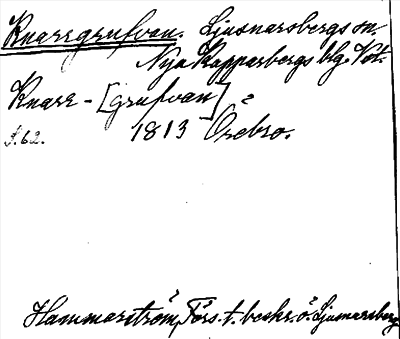 Knarrgrufvan. Ljusnarsbergs sn.
Nya Kopparbergs blg. Vst.
Knarr-[grufvan]
S. 62. 1813 Örebro.
Hammarström, Förs. t. beskr. ö. Ljusnarsberg